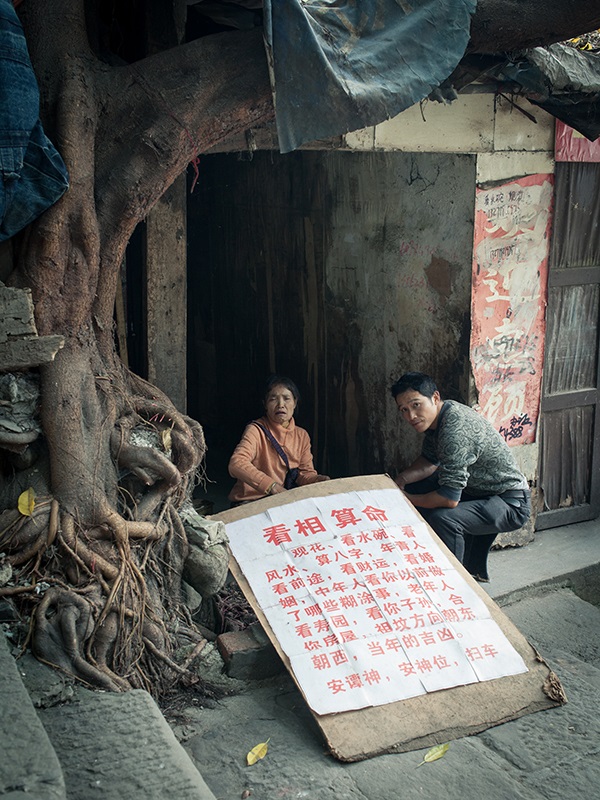 看相算命
观花、看水碗、看
风水、算八字，年青人
看前途，看财运，看婚
姻，中年人看你以前做
了哪些糊涂事，老年人
看寿园，看你子孙，合
你房屋，祖坟方向朝东
朝西，当年的吉凶。
安谭神，安神位，扫车
欢迎惠顾